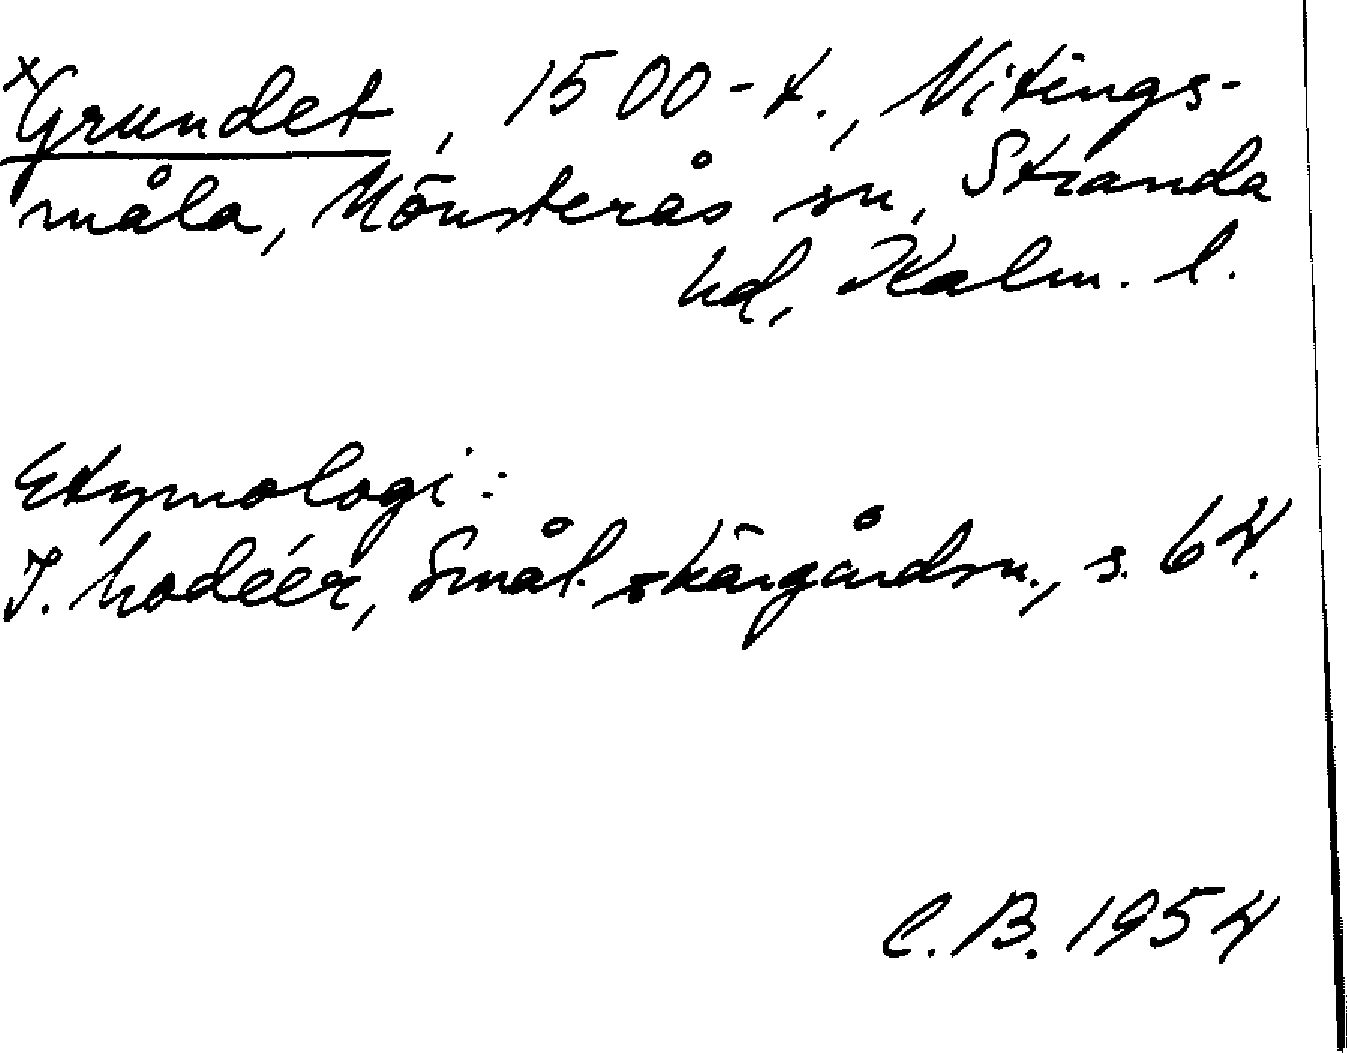 xGrundet, 1500-t., Nitings-
måla, Mönsterås sn, Stranda
hd, Kalm. l.
Etymologi:
I. Modéer, Smål. skärgårdsn., s. 64.
C.B. 1954